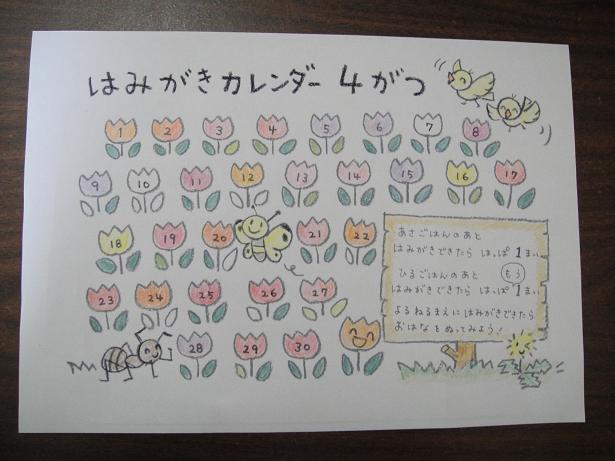 はみがきカレンダー 4がつ
1 2 3 4 5 6 7 8
9 10 11 12 13 14 15 16 17
18 19 20 21 22
23 24 25 26 27
28 29 30
あさごはんのあと
はみがきできたら はっぱ1まい
ひるごはんのあと もう
はみがきできたら はっぱ1まい
よるねるまえにはみがきできたら
おはなをぬってみよう!